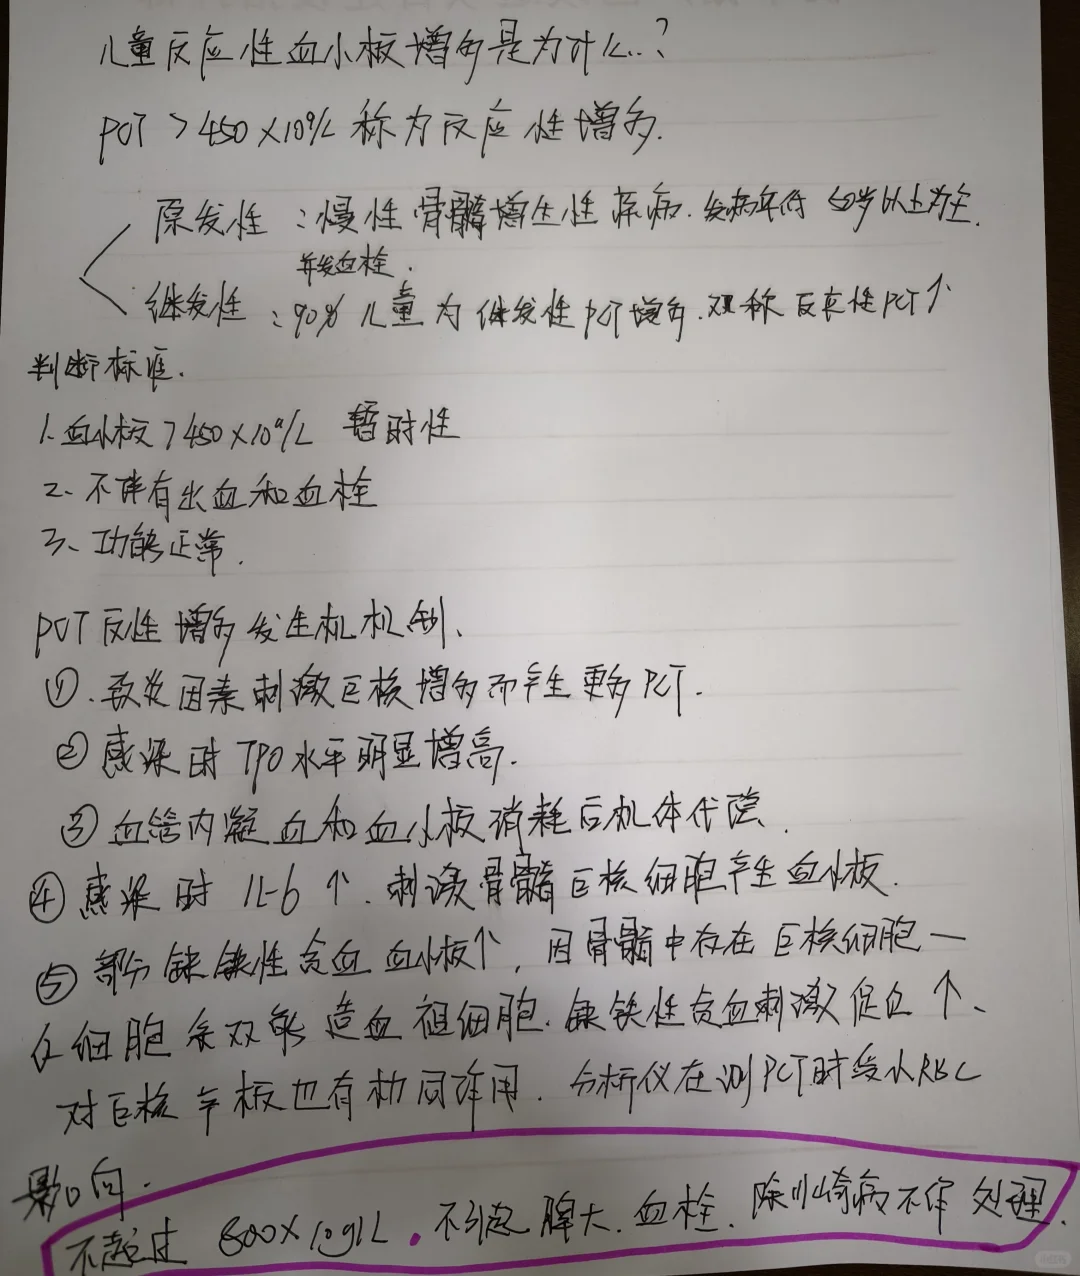 儿童反应性血小板增多是为什么..?
PCT > 450×10⁹/L 称为反应性增多.
原发性 : 慢性骨髓增生性疾病. 发病率低 50岁以上为主.
并发血栓.
继发性 : 90% 儿童为继发性PCT增多. 又称反应性PCT↑
判断标准.
1. 血小板 > 450×10⁹/L 暂时性
2. 不伴有出血和血栓
3、功能正常.
PCT 反性增多发生机机制、
①. 致炎因素刺激巨核增多而产生更多PCT.
② 感染时 TPO水平明显增高.
③ 血管内凝血和血小板消耗后机体代偿.
④ 感染时 IL-6 ↑. 刺激骨髓巨核细胞产生血小板.
⑤ 部分缺铁性贫血血小板↑, 因骨髓中存在巨核细胞一
红细胞系双能造血祖细胞. 缺铁性贫血刺激促红↑、
对巨核产板也有协同作用. 分析仪在测PCT时受小RBC
影响.
不超过 600×10⁹/L. 不引起脾大. 血栓. 除川崎病不作处理.